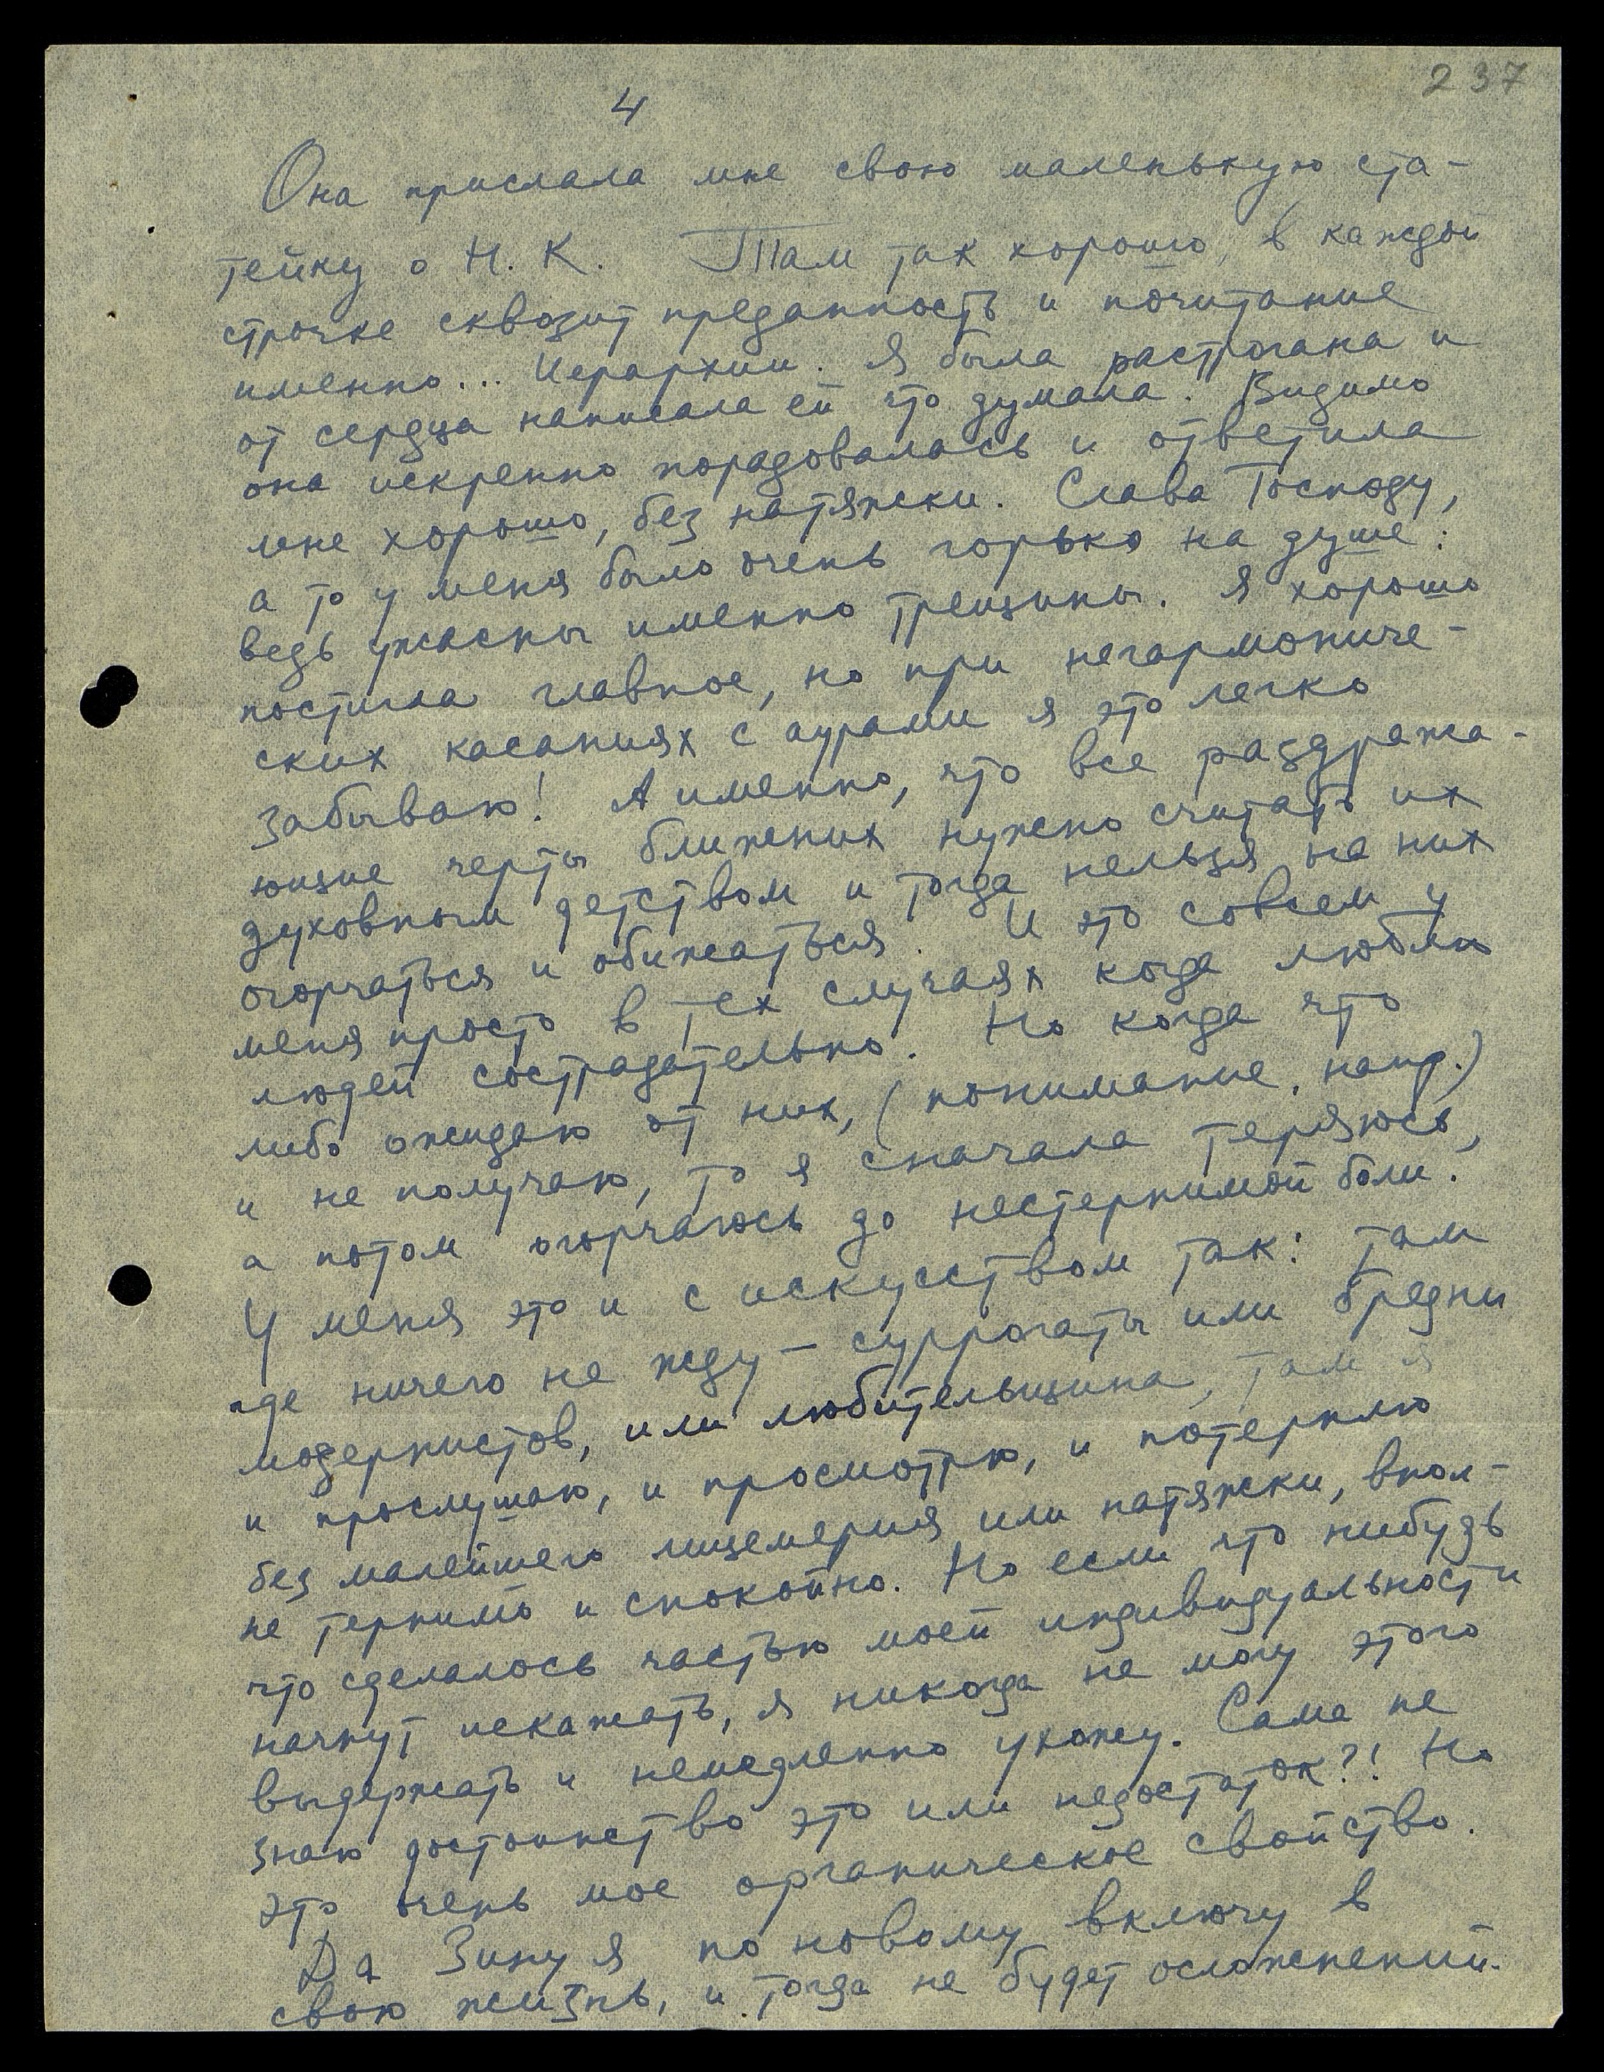 237
4
Она прислала мне свою маленькую ста-
тейку о Н. К. Там так хорошо, в каждой
строчке сквозит преданность и почитание
именно... Иерархии. Я была растрогана и
от сердца написала ей что думала. Видимо
она искренно порадовалась и ответила
мне хорошо, без натяжки. Слава Господу,
а то у меня было очень горько на душе:
ведь ужасны именно трещины. Я хорошо
постигла главное, но при негармониче-
ских касаниях с аурами я это легко
забываю! А именно, что все раздража-
ющие черты ближних нужно считать их
духовным детством и тогда нельзя на них
огорчаться и обижаться. И это совсем у
меня просто в тех случаях когда люблю
людей сострадательно. Но когда что
либо ожидаю от них, (понимание, напр.)
и не получаю, то я сначала теряюсь,
а потом огорчаюсь до нестерпимой боли.
У меня это и с искусством так: там
где ничего не жду — суррогаты или бредни
модернистов, или любительщина, там я
и прослушаю, и просмотрю, и потерплю
без малейшего лицемерия или натяжки, впол-
не терпимо и спокойно. Но если что нибудь
что сделалось частью моей индивидуальности
начнут искажать, я никогда не могу этого
выдержать и немедленно ухожу. Сама не
знаю достоинство это или недостаток?! Но
это очень мое органическое свойство.
Да Зину я по новому включу в
свою жизнь, и тогда не будет осложнений.